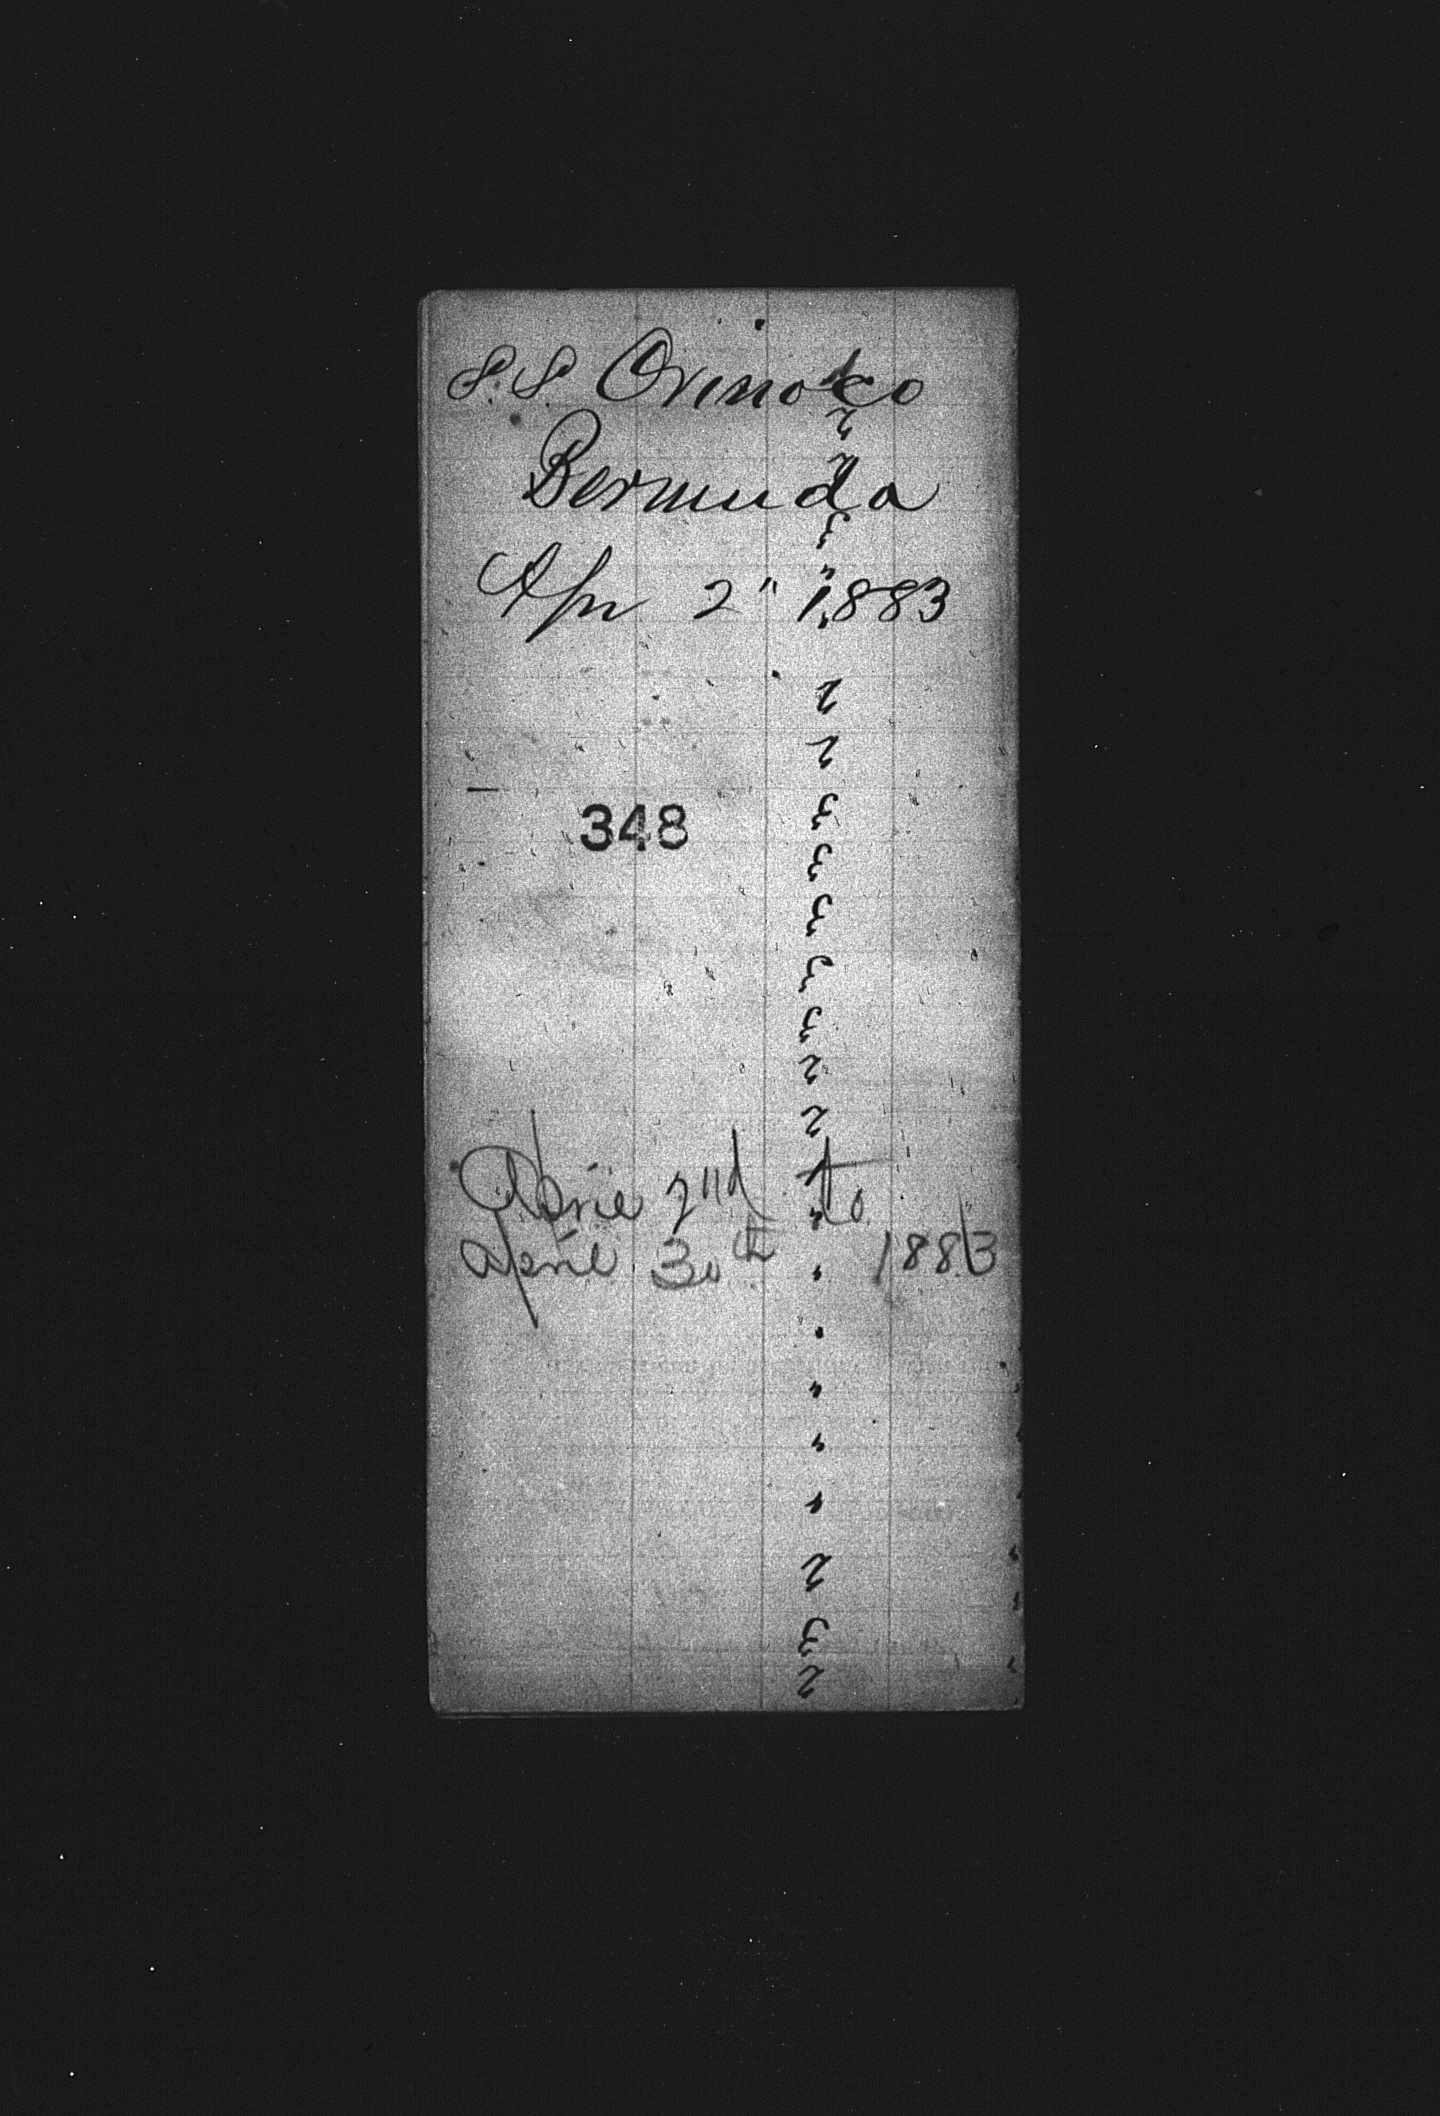 S.S. Orinoco
Bermuda
Apr 2" 1883
348
April 2nd to
April 30th 1883